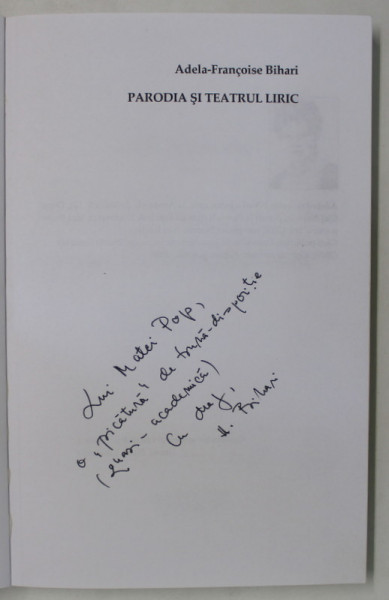 Adela-Françoise Bihari
PARODIA ŞI TEATRUL LIRIC
Lui Matei Pop,
o "picătură" de bună-dispoziție
(quasi-academică)
Cu drag,
A. Bihari